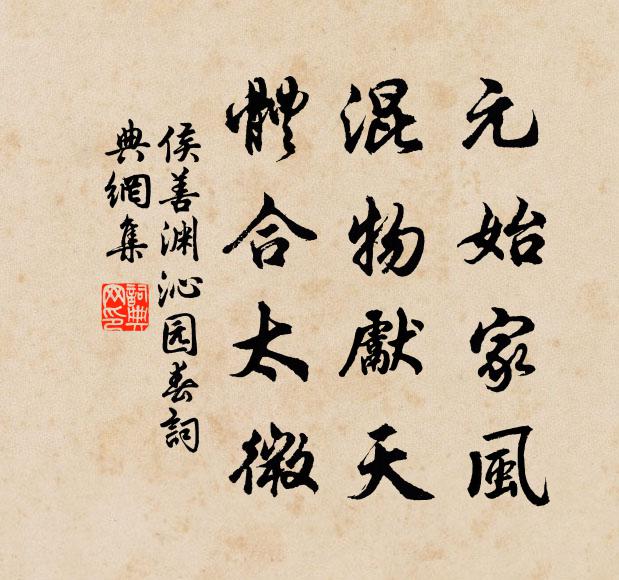 元始家風
混物獻天
體合太微
侯善渊沁园春詞
典網集
詞典
网印